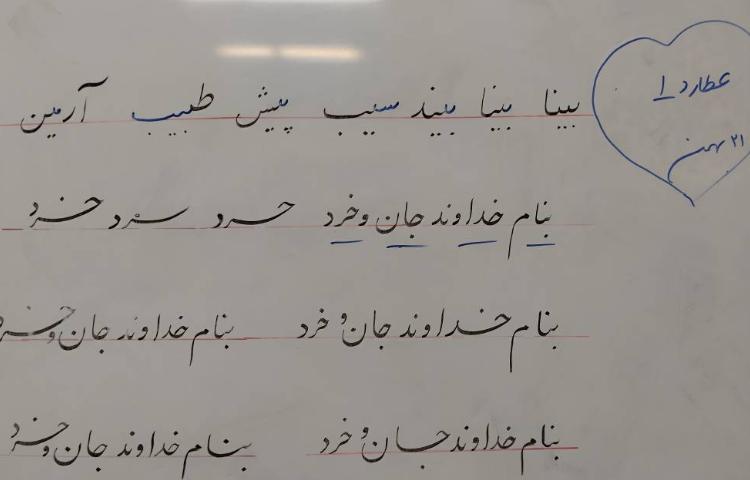 عطارد ۱
۲۱ بهمن
بینا بینا بیند سیب پیش طبیب آرمین
بنام خداوند جان و خرد خرد سرد خرد
بنام خداوند جان و خرد بنام خداوند جان و خرد
بنام خداوند جان و خرد بنام خداوند جان و خرد